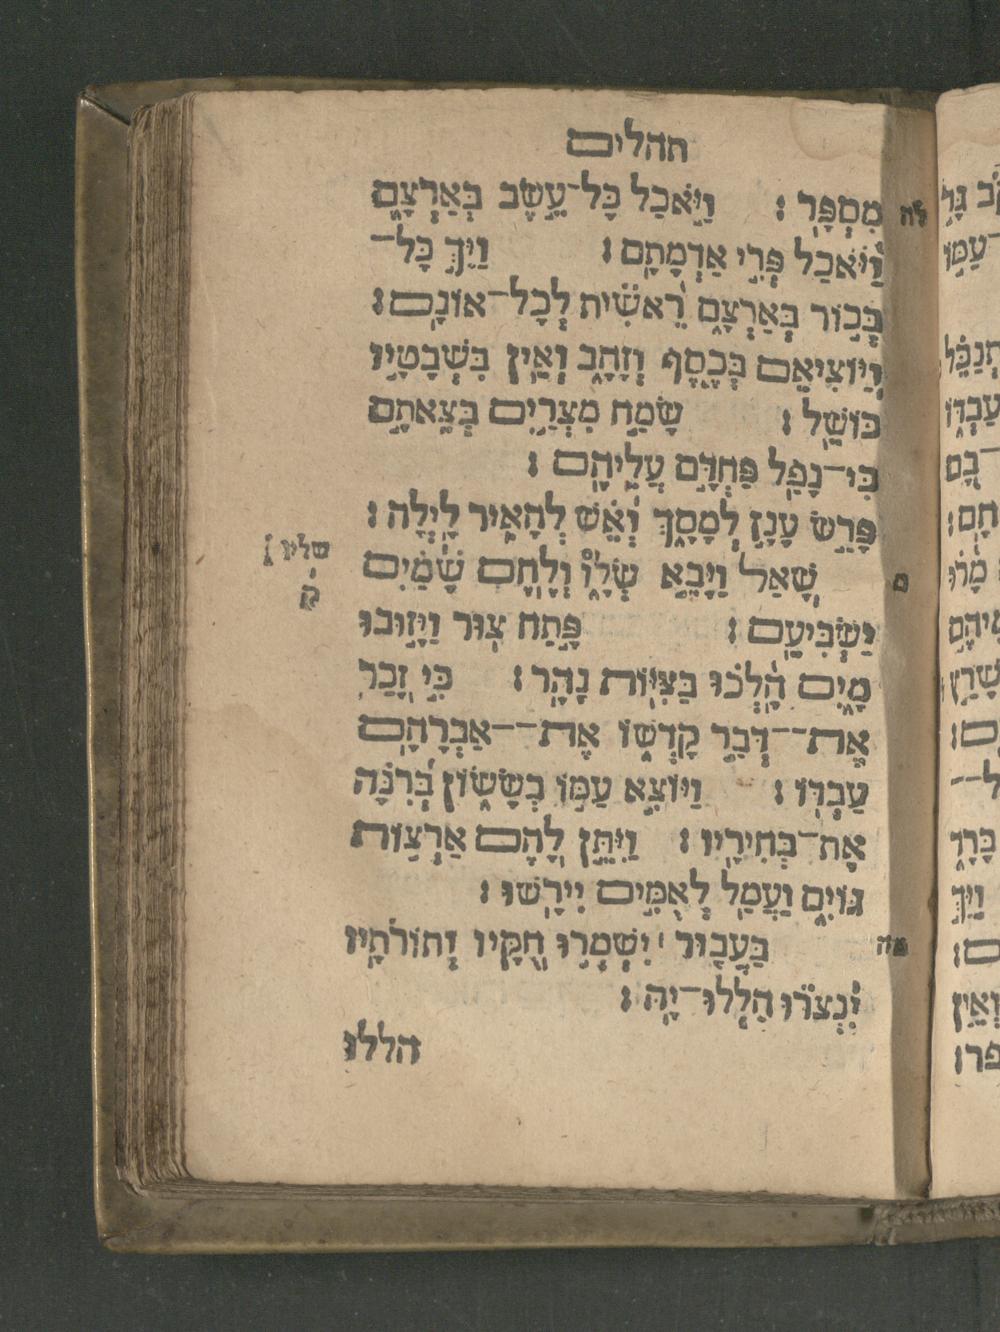 תהלים
לה מִסְפָּר׃ וַיֹּאכַל כָּל־עֵשֶׂב בְּאַרְצָם
וַיֹּאכַל פְּרִי אַדְמָתָם׃ וַיַּךְ כָּל־
בְּכוֹר בְּאַרְצָם רֵאשִׁית לְכָל־אוֹנָם׃
וַיּוֹצִיאֵם בְּכֶסֶף וְזָהָב וְאֵין בִּשְׁבָטָיו
כּוֹשֵׁל׃ שָׂמַח מִצְרַיִם בְּצֵאתָם
כִּי־נָפַל פַּחְדָּם עֲלֵיהֶם׃
פָּרַשׂ עָנָן לְמָסָךְ וְאֵשׁ לְהָאִיר לָיְלָה׃
מ שָׁאַל וַיָּבֵא שְׂלָו וְלֶחֶם שָׁמַיִם
שליו
ק
יַשְׂבִּיעֵם׃ פָּתַח צוּר וַיָּזוּבוּ
מָיִם הָלְכוּ בַּצִּיּוֹת נָהָר׃ כִּי זָכַר
אֶת־־דְּבַר קָדְשׁוֹ אֶת־־אַבְרָהָם
עַבְדּוֹ׃ וַיּוֹצִא עַמּוֹ בְשָׂשׂוֹן בְּרִנָּה
אֶת־בְּחִירָיו׃ וַיִּתֵּן לָהֶם אַרְצוֹת
גּוֹיִם וַעֲמַל לְאֻמִּים יִירָשׁוּ׃
מה בַּעֲבוּר ׀ יִשְׁמְרוּ חֻקָּיו וְתוֹרֹתָיו
יִנְצֹרוּ הַלְלוּ־יָהּ׃
הללו